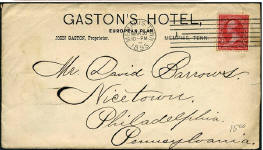 GASTON'S HOTEL,
EUROPEAN PLAN.
JOHN GASTON, Proprietor. MEMPHIS, TENN.
10-PM
1895
Mr. David Barrows.
Nicetown.
Philadelphia.
Pennsylvania.